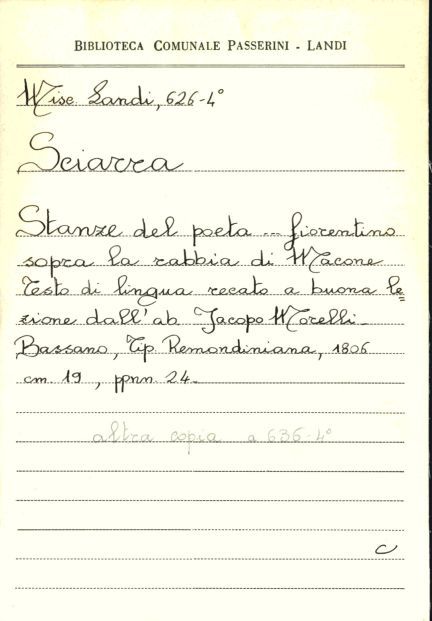 BIBLIOTECA COMUNALE PASSERINI - LANDI
Misc. Landi, 626-4°
Sciarra
Stanze del poeta ... fiorentino
sopra la rabbia di Macone
Testo di lingua recato a buona le=
zione dall'ab. Jacopo Morelli.
Bassano, Tip. Remondiniana, 1806
cm. 19, ppnn. 24.
altra copia a 636-4°
C